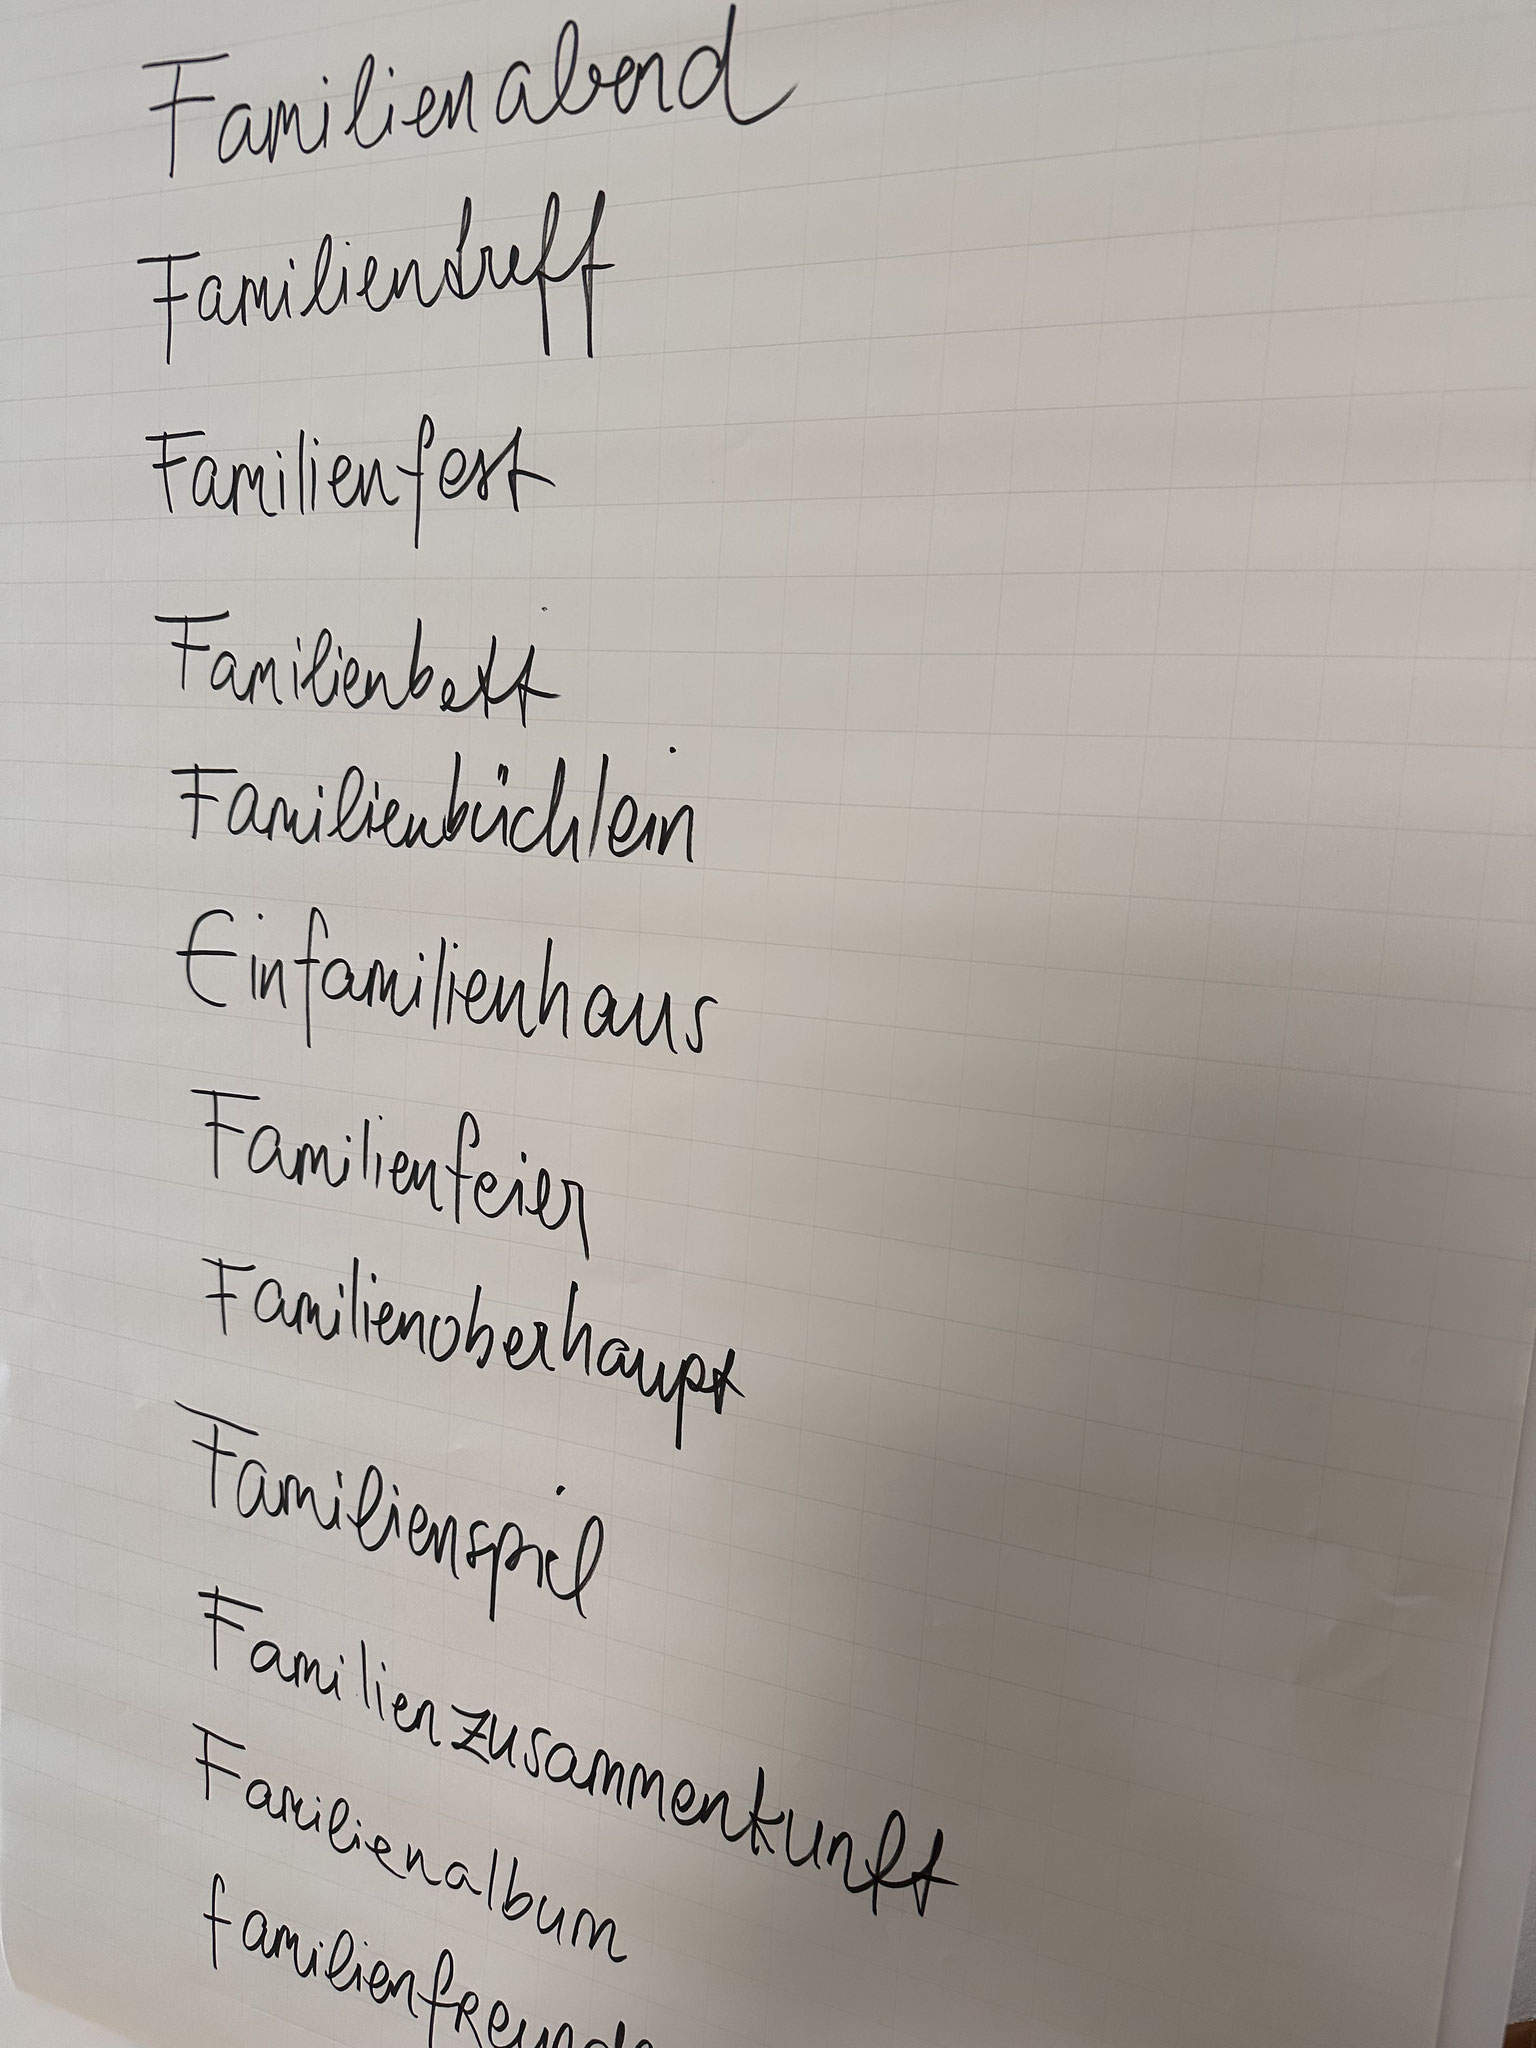 Familienabend
Familientreff
Familienfest
Familienbett
Familienbüchlein
Einfamilienhaus
Familienfeier
Familienoberhaupt
Familienspiel
Familienzusammenkunft
Familienalbum